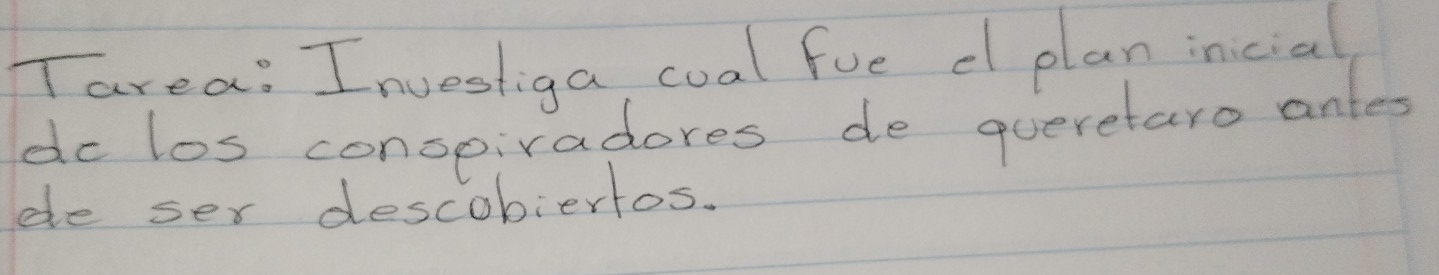 Tarea: Investiga cual fue el plan inicial
de los conspiradores de queretaro antes
de ser descubiertos.